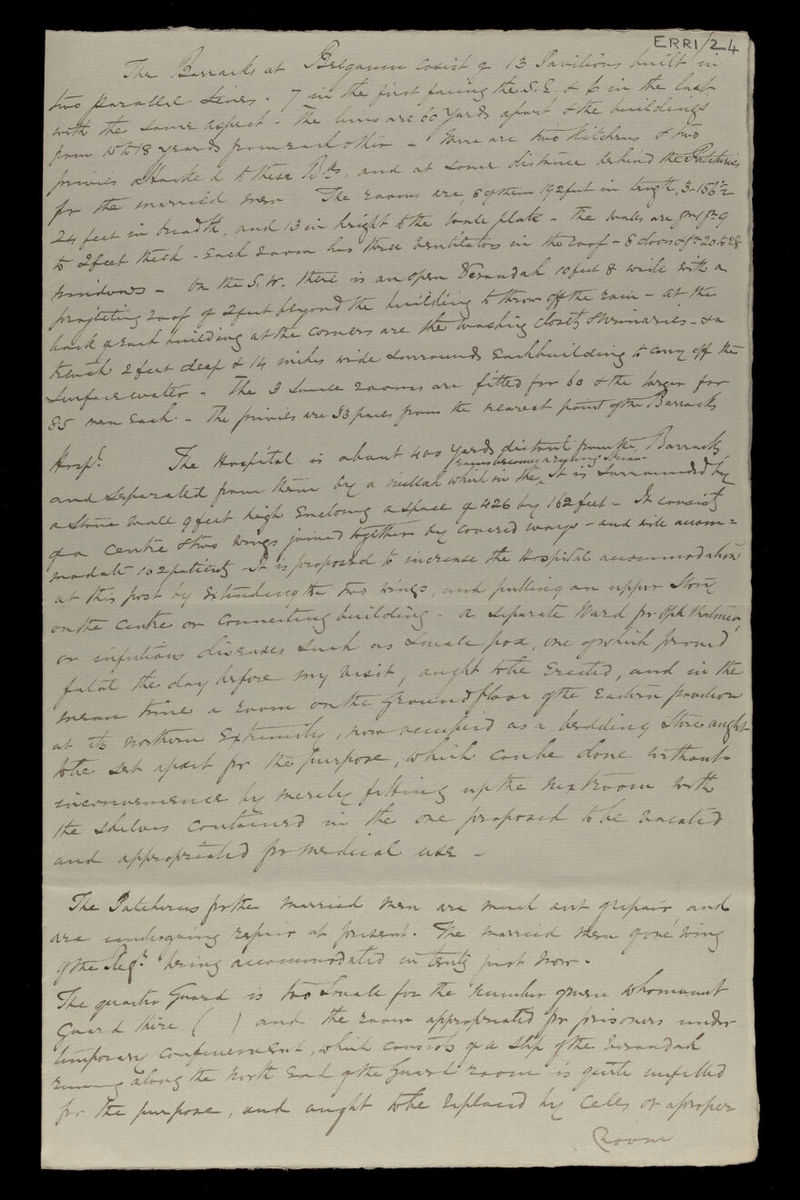 ERRI/24
The Barracks at Belgaum cosist of 13 Pavilions built in
two parallel lines. 7 in the first facing the S.E. & 6 in the last
with the same aspect - The lines are 60 yards apart & the buildings
from 15 to 18 yards from each other - There are two Kitchens & two
privies attached to these Bks, and at some distance behind the Patcheries
for the married men The rooms are, 6 of them 192 feet in length, 3 - 156 1/2
24 feet in breadth, and 13 in height to the wall plate - The walls are from 9
to 2 feet thick - Each room has three ventilators in the roof - 8 doors & fm 20 to 28
windows - On the S.W. there is an open Verandah 10 feet 8 wide with a
projecting roof of 2 feet beyond the building to throw off the rain - at the
back of each building at the corners are the washing closets & urinaries - & a
trench 2 feet deep & 14 inches wide surrounds each building to carry off the
surface water - The 3 small rooms are fitted for 60 & the larger for
85 men each. - The privies are 33 paces from the nearest point of the Barracks
Hospl. The Hospital is about 400 yards distant from the Barracks
rains becomes a stream
and separated from them by a nullah which in the It is surrounded by
a stone wall 9 feet high enclosing a space of 426 by 162 feet - It consists
of a centre & two wings joined together by covered ways - and will accom=
modate 102 patients It is proposed to increase the Hospital accommodation
at this post by extending the two wings, and putting an upper Story
on the centre or connecting building - a separate Ward for Ophthalmia,
or infectious diseases such as small pox, one of which proved
fatal the day before my visit, aught to be erected, and in the
mean time a room on the ground floor of the Eastern pavilion
at its northern extremity, now occupied as a bedding Store aught
to be set apart for the purpose, which can be done without
inconvenience by merely fitting up the next room with
the shelves contained in the one proposed to be vacated
and appropriated for medical use -
The Patcheries for the married men are much out of repair, and
are undergoing repair at present. The married men of one wing
of the Regt. being accommodated in tents just now.
The quarter Guard is too small for the number of men who mount
Guard there ( ) and the room appropriated for prisoners under
temporary confinement, which consists of a slip of the Verandah
running along the North End of the Guard room is quite unfitted
for the purpose, and aught to be replaced by cells or a proper
room